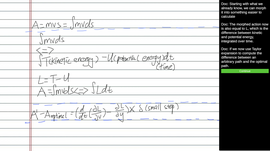 A=mvs=∫mvds
∫mvds
<=>
∫T(kinetic energy)-U(potential energy)dt
(time)
L=T-U
A=∫mvds<=>∫Ldt
Doc: Starting with what we already know, we can morph it into something easier to calculate
Doc: The morphed action now is also equal to L which is the difference between kinetic and potential energy, integrated over time.
Doc: If we now use Taylor expansion to compute the difference between an arbitrary path and the optimal path